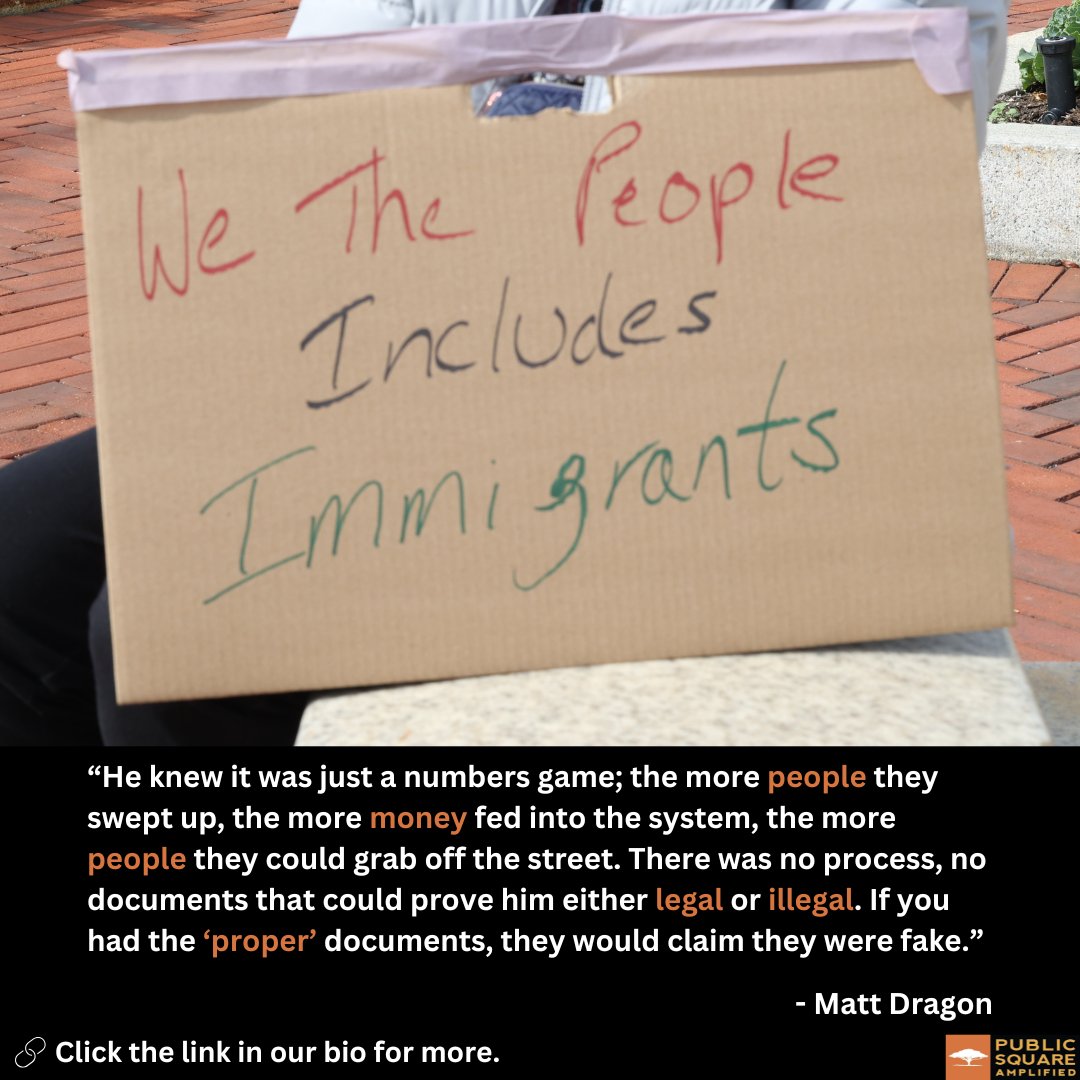 We The People
Includes
Immigrants
“He knew it was just a numbers game; the more people they
swept up, the more money fed into the system, the more
people they could grab off the street. There was no process, no
documents that could prove him either legal or illegal. If you
had the ‘proper’ documents, they would claim they were fake.”
- Matt Dragon
Click the link in our bio for more.
PUBLIC
SQUARE
AMPLIFIED